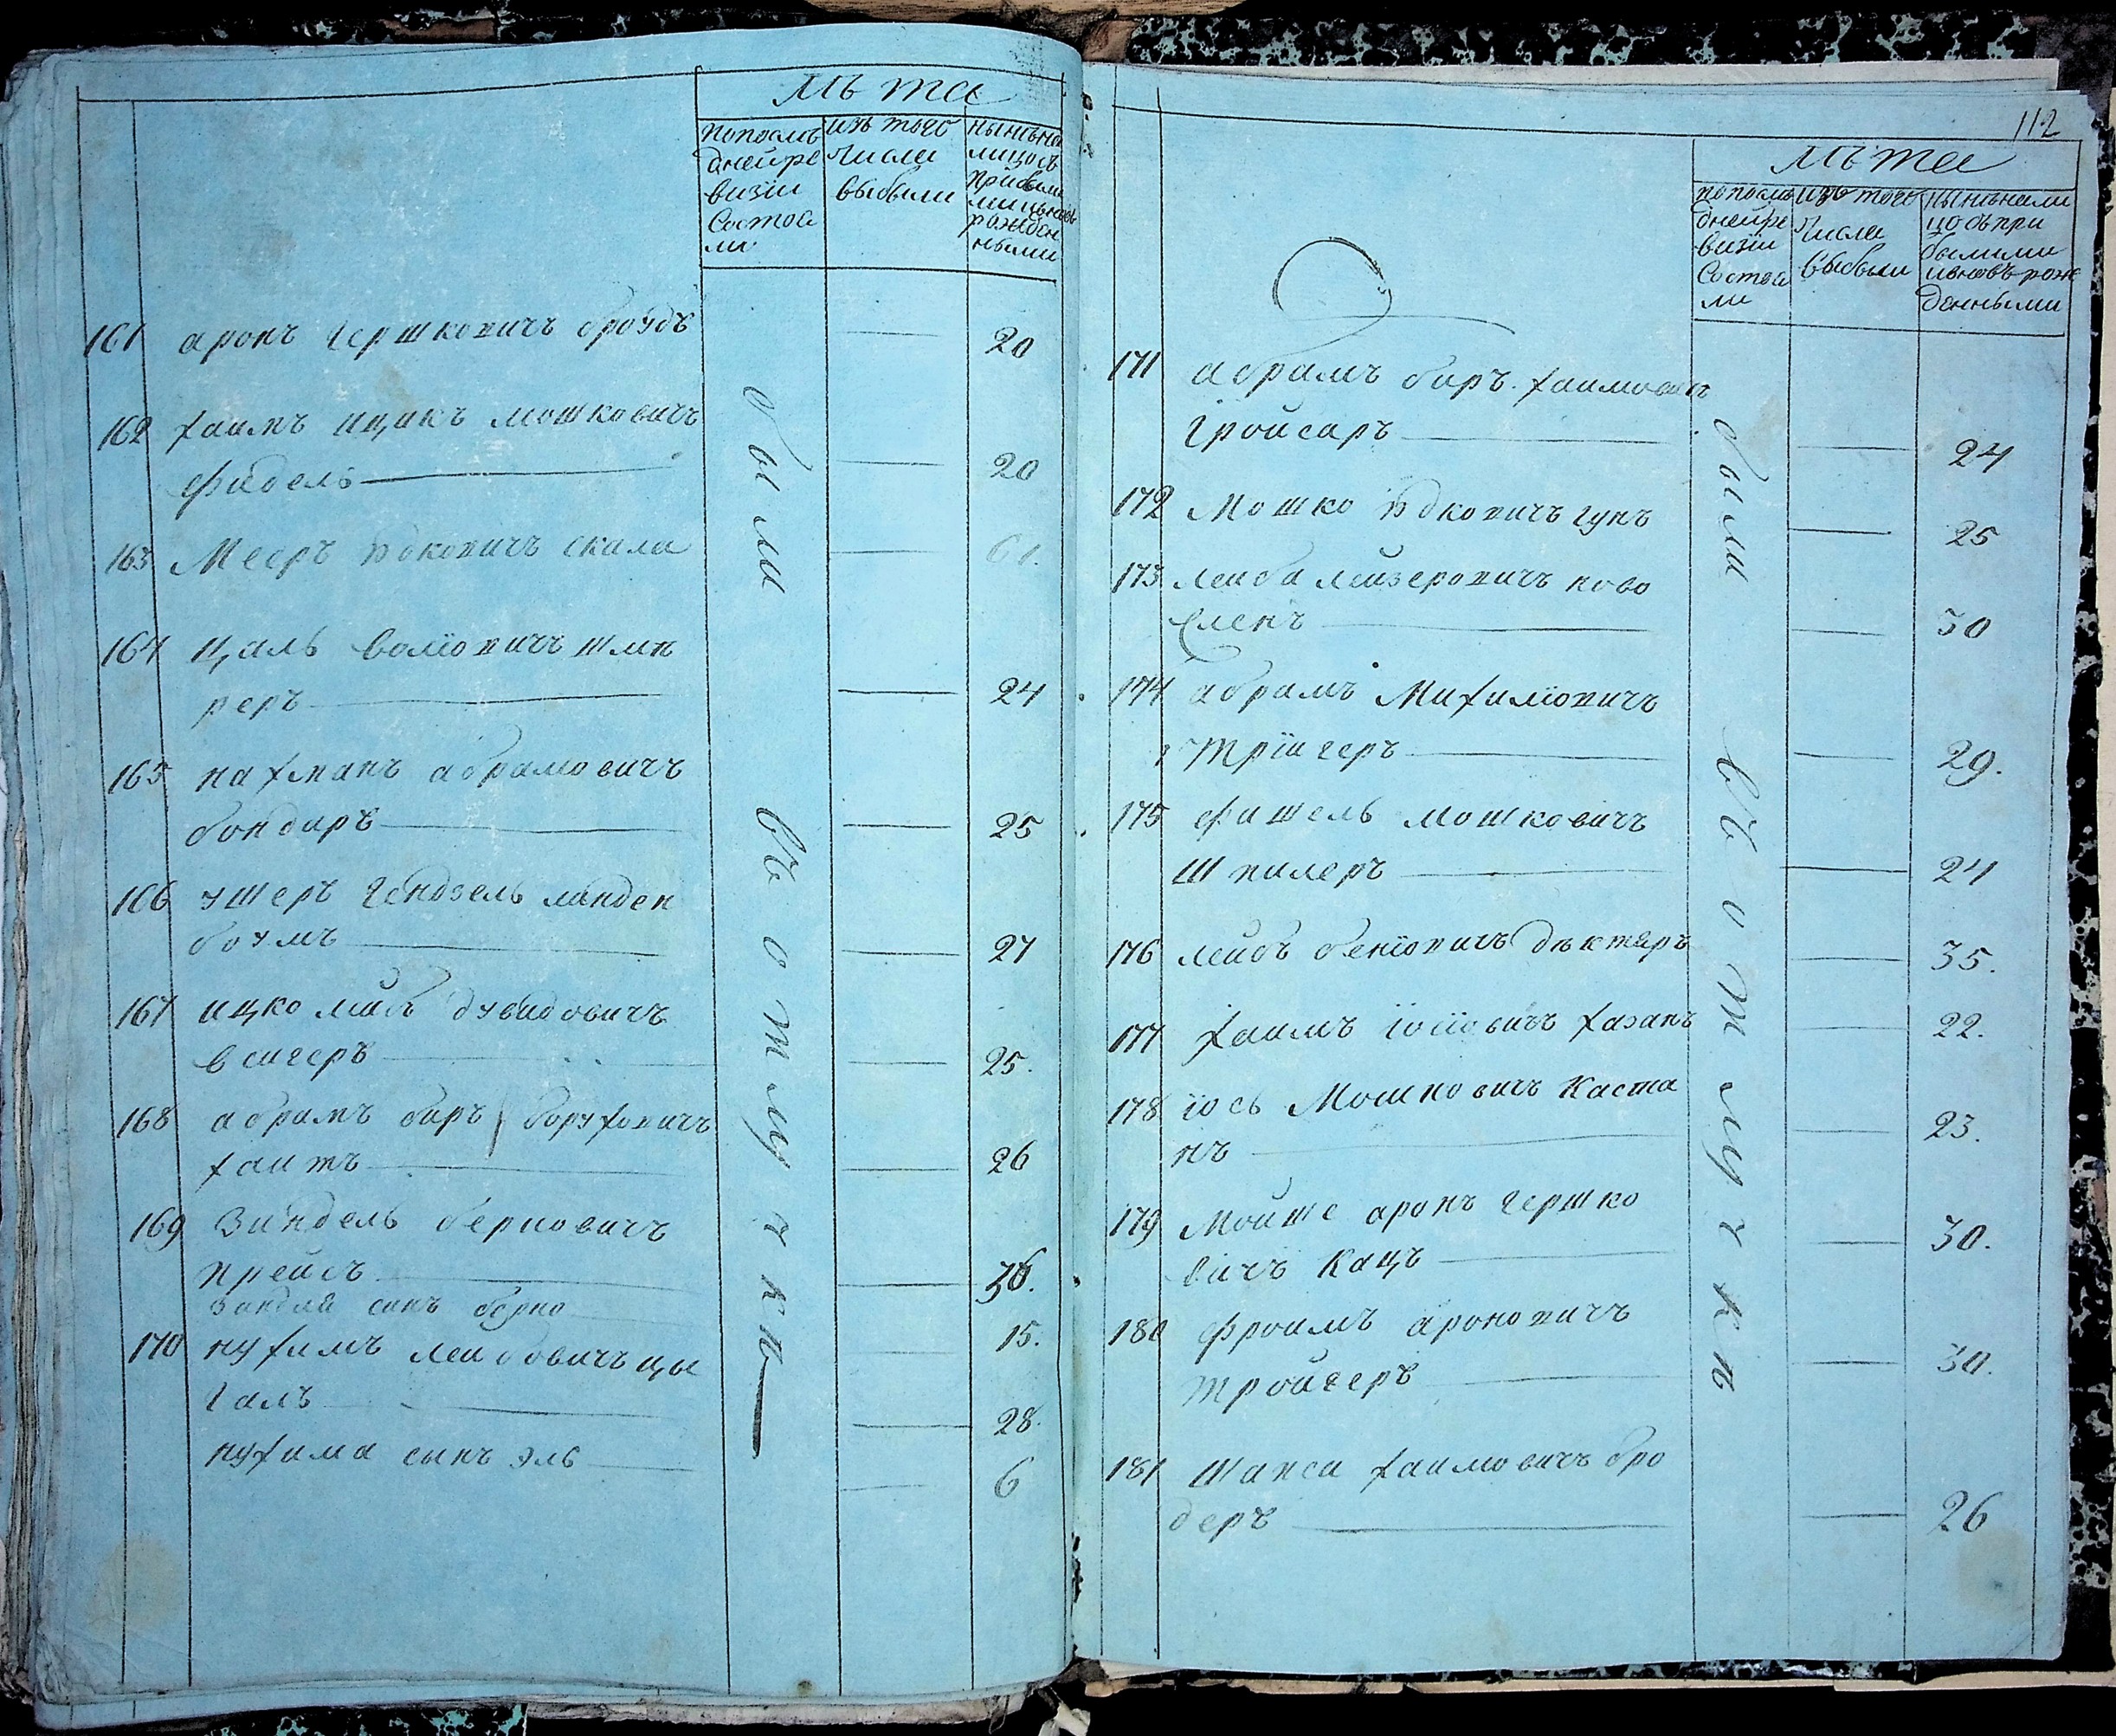 лѣта
по послѣ
дней ре
визіи
состоя
ли
изъ того
числа
выбыли
нынѣ на
лицо съ
прибылы
ми и вновь
рожден
ными
161 аронъ гершковичъ броудъ 20
162 хаимъ ицикъ мошковичъ
фидель 20
163 Мееръ юдковичъ скала 61.
164 Цаль волїовичъ
реръ 24
165 нахманъ абрамовичъ
бондаръ 25
166 ушеръ гендзель линден
боумъ 27
167 ицко дувидовичъ
вейгеръ 25.
168 абрамъ беръ боруховичъ
хаитъ 26
169 Зиндель берковичъ
прейсъ 36.
зинделя синъ берко 15.
170 нухимъ лейбовичъ цы
галъ 28.
нухима сынъ эль 6
были въ отлучкѣ
112
лѣта
по послѣ
дней ре
визіи
состоя
ли
изъ того
числа
выбыли
нынѣ нали
цо съ при
былыми
и вновь рож
денными
171 абрамъ беръ хаимович
Гройсаръ 24
172 Мошко юдковичъ гунъ 25
173 лейба лейзеровичъ ново
селекъ 30
174 абрамъ Михилїовичъ
Трїигеръ 29.
175 фишель мошковичъ
шпилеръ 24
176 лейбъ бенїовичъ дѣктяръ 35.
177 хаимъ їосїовичъ хазанъ 22.
178 їось Мошковичъ Каста
нъ 23.
179 Мойше аронъ гершко
вичъ Кацъ 30.
180 фроимъ ароновичъ
тройгеръ 30.
181 Шапса хаимовичъ бро
деръ 26
были въ отлучкѣ